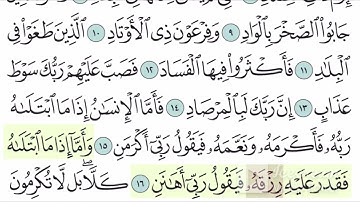 جَابُوا۟ ٱلصَّخْرَ بِٱلْوَادِ ٩ وَفِرْعَوْنَ ذِى ٱلْأَوْتَادِ ١٠ ٱلَّذِينَ طَغَوْا۟ فِى
ٱلْبِلَـٰدِ ١١ فَأَكْثَرُوا۟ فِيهَا ٱلْفَسَادَ ١٢ فَصَبَّ عَلَيْهِمْ رَبُّكَ سَوْطَ
عَذَابٍ ١٣ إِنَّ رَبَّكَ لَبِٱلْمِرْصَادِ ١٤ فَأَمَّا ٱلْإِنسَـٰنُ إِذَا مَا ٱبْتَلَىٰهُ
رَبُّهُۥ فَأَكْرَمَهُۥ وَنَعَّمَهُۥ فَيَقُولُ رَبِّىٓ أَكْرَمَنِ ١٥ وَأَمَّآ إِذَا مَا ٱبْتَلَىٰهُ
فَقَدَرَ عَلَيْهِ رِزْقَهُۥ فَيَقُولُ رَبِّىٓ أَهَـٰنَنِ ١٦ كَلَّا ۖ بَل لَّا تُكْرِمُونَ